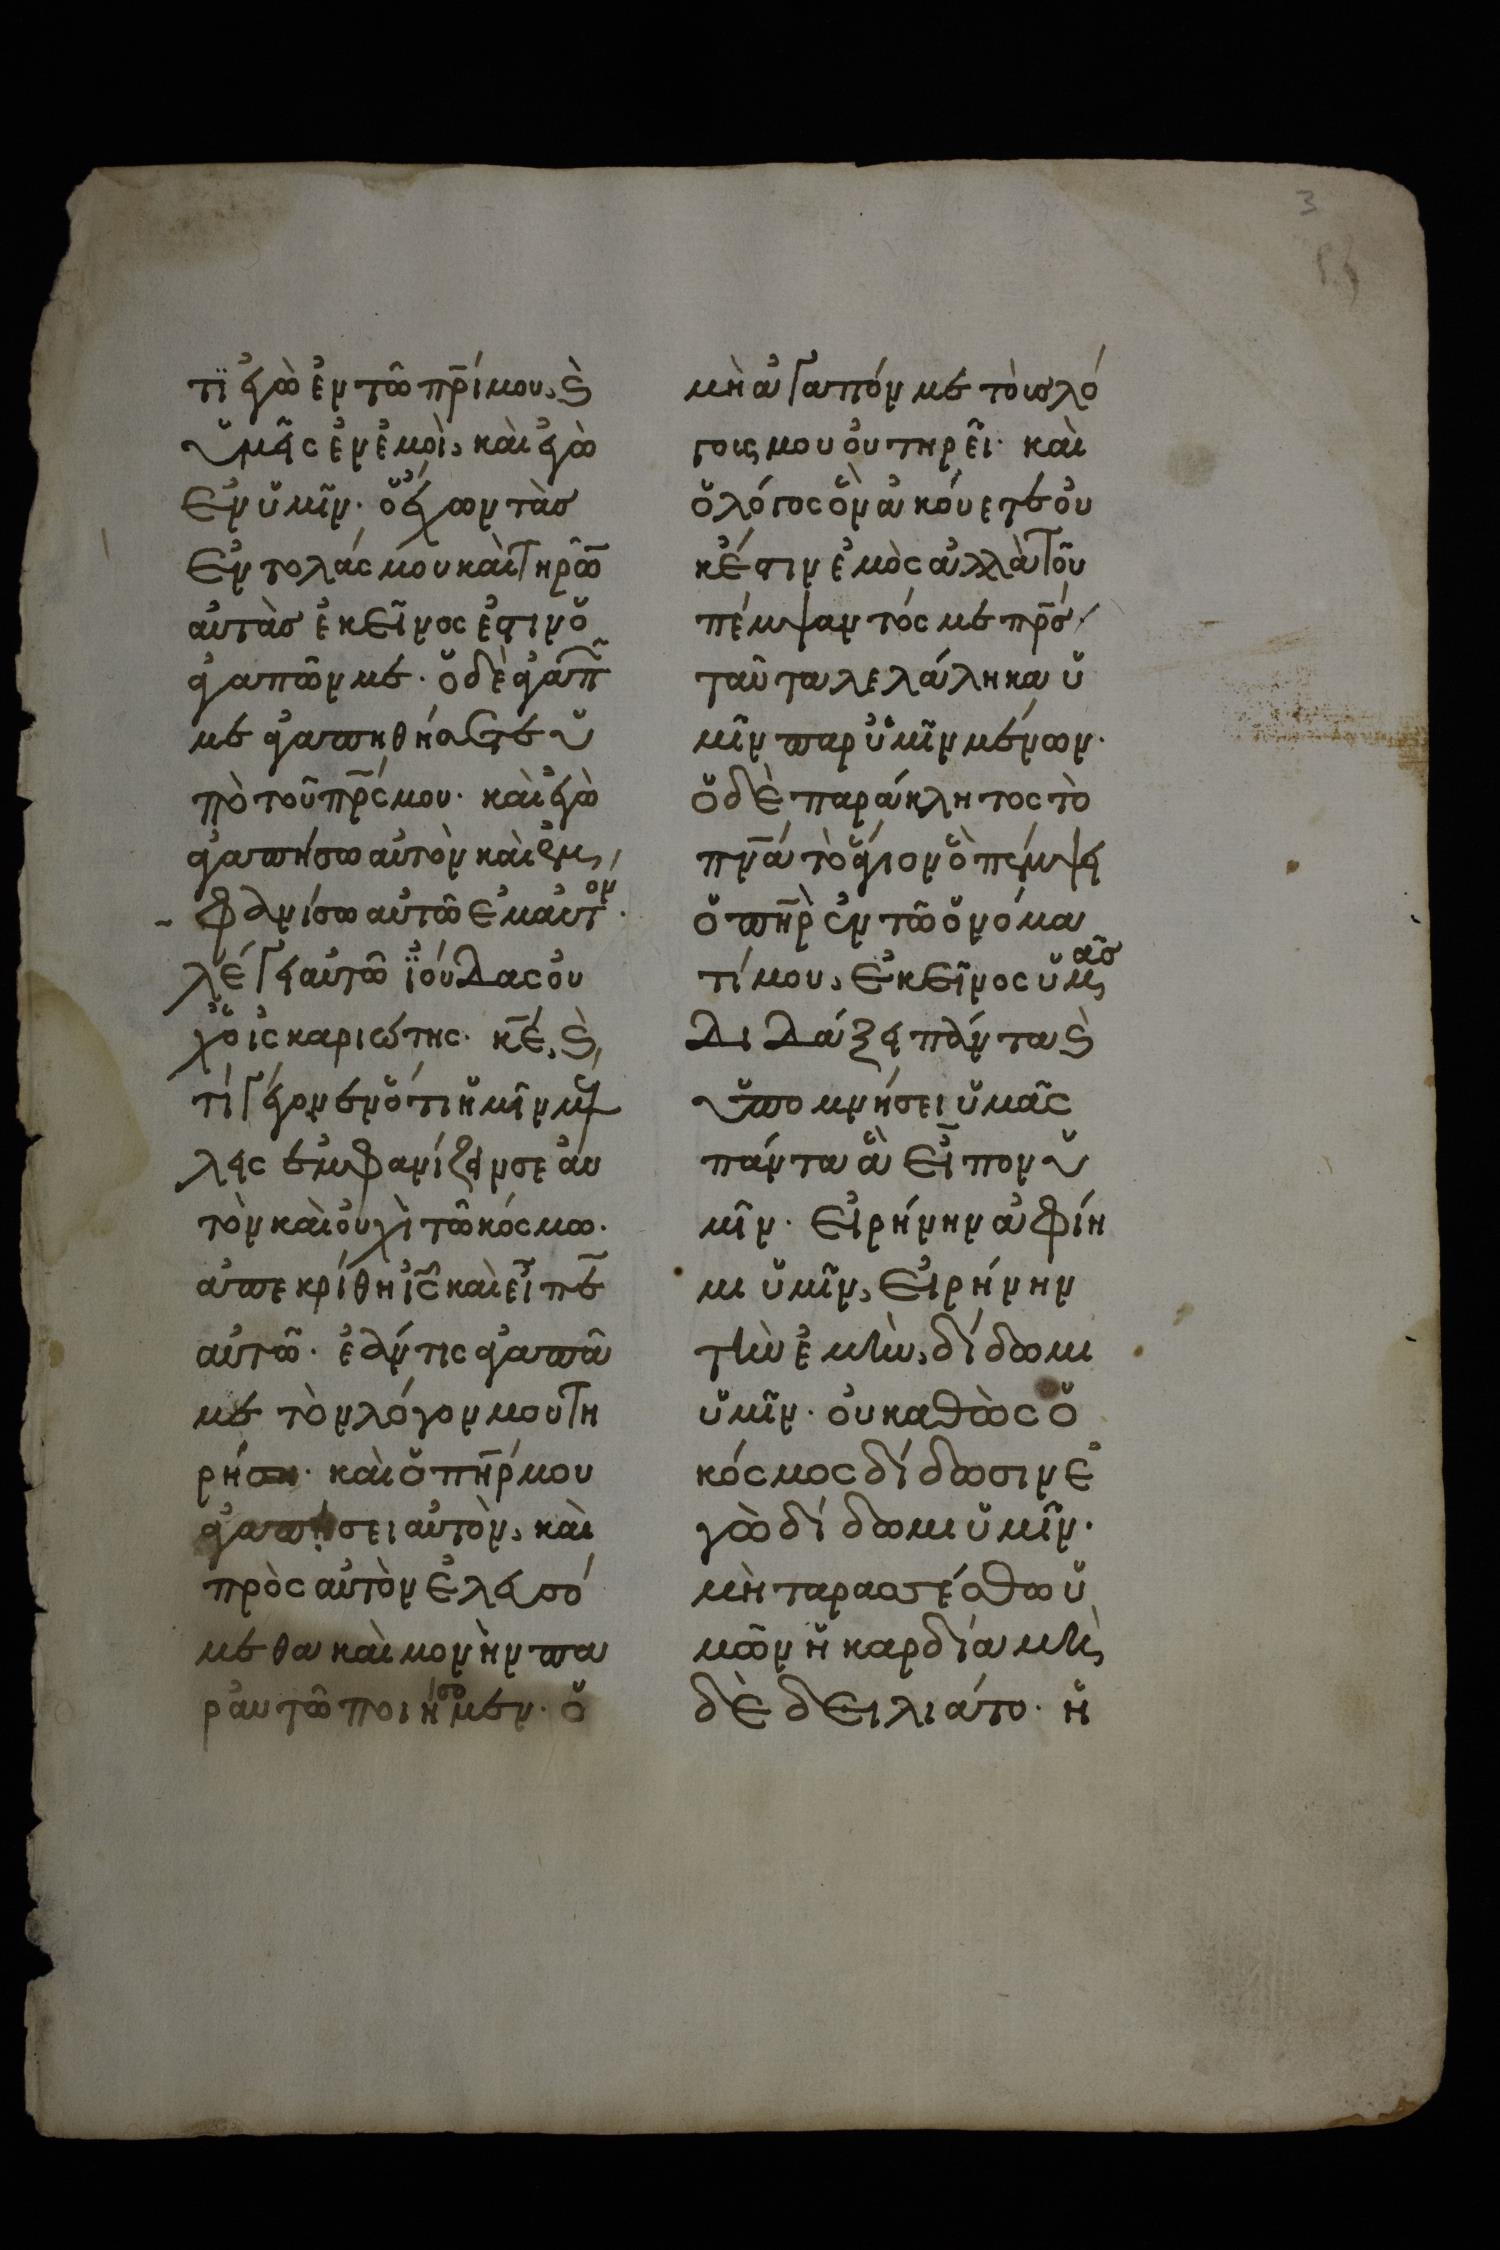 3
τϊ ἐγὼ ἐν τῶ πρ̅ί μου, ϗ̀
ὑμεῖς ἐν ἐμοὶ, καὶ ἐγὼ
ἐν ὑμῖν· ὁ ἔχων τὰσ
ἐντολάς μου καὶ τηρῶ̅
αὐτὰσ ἐκεῖνος ἐστιν ὁ
ἀγαπῶν με· ὁ δὲ ἀγαπῶ̅
με ἀγαπηθήσεται ὑ
πὸ τοῦ πρ̅ς μου· καὶ ἐγὼ
ἀγαπήσω αὐτὸν καὶ ἐμ
φανίσω αὐτῶ ἐμαυτόν·
λέγει αὐτῶ ϊούδας οὐ
χ ὁ ἰσκαριώτης· κ̅έ, ϗ̀
τί γέγονεν ὅτι ἡμῖν μέλ
λεις ἐμφανίζειν σεαυ
τὸν καὶ οὐχὶ τῶ κόσμω·
ἀπεκρίθη ἰ̅ς̅ καὶ εἶπεν
αὐτῶ· ἐάν τις ἀγαπᾶ
με τὸν λόγον μου τη
ρήσει· καὶ ὁ πη̅ρ μου
ἀγαπήσει αὐτὸν, καὶ
πρὸς αὐτὸν ἐλευσό
μεθα καὶ μονὴν πα
ρ αὐτῶ ποιησόμεν· ὁ
μὴ ἀγαπόν με τοὺσ λό
γους μου οὐ τηρεῖ· καὶ
ὁ λόγος ὃν ἀκούετε οὐ
κ ἔστιν ἐμὸς ἀλλὰ τοῦ
πέμψαντός με πρ̅σ·
ταῦτα λελάληκα ὑ
μῖν παρ ὑμῖν μένων·
ὁ δὲ παράκλητος τὸ
πν̅α τὸ ἅγιον ὃ πέμψει
ὁ πη̅ρ ἐν τῶ ὀνόμα
τί μου, ἐκεῖνος ὑμᾶσ
διδάξει πάντα ϗ̀
ὑπομνήσει ὑμᾶς
πάντα ἃ εἶπον ὑ
μῖν· εἰρήνην ἀφίη
μι ὑμῖν, εἰρήνην
τὴν ἐμὴν, δίδωμι
ὑμῖν· οὐ καθὼς ὁ
κόσμος δίδωσιν ἐ
γὼ δίδωμι ὑμῖν·
μὴ ταρασσέσθω ὑ
μῶν ἡ καρδία μη
δὲ δειλιάτο· ἠ